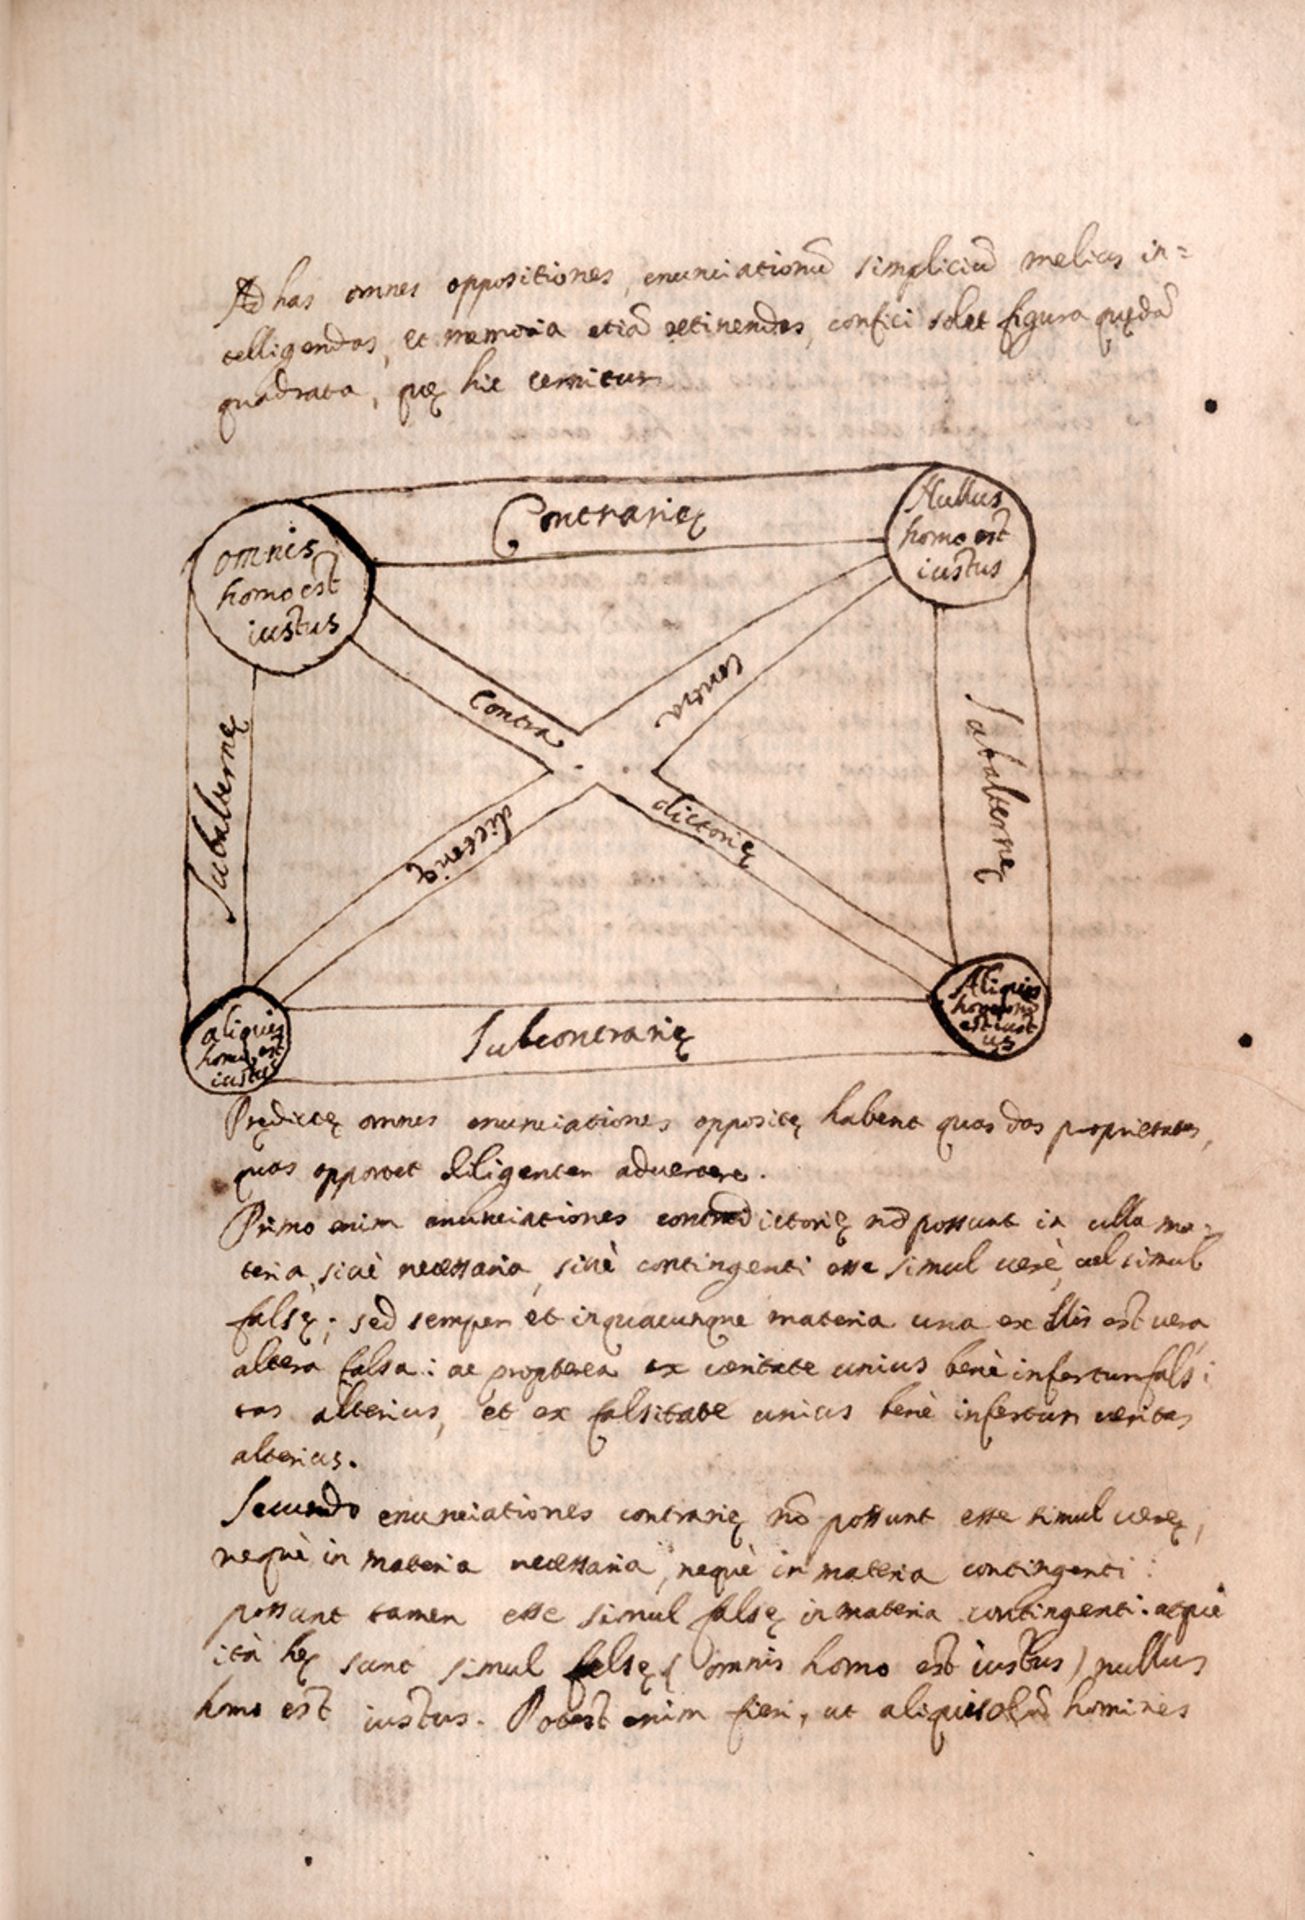 Ad has omnes oppositiones, enunciationũ simpliciũ melius in=
telligendas, et memoria etiã retinendas, confici solet figura quędã
quadrata, quę hic cernitur
Contrarię
omnis
homo est
iustus
Nullus
homo est
iustus
Contra
contra
Subalternę
Subalternę
dictorię
dictorię
aliquis
homo est
iustus
Aliquis
homo non
est iust
us
Subcontrarię
Prędictę omnes enunciationes oppositę habent quasdas proprietates,
quas opportet diligenter advertere.
Primo enim enunciationes contradictorię nõ possunt in ulla ma=
teria, sivè necessaria, sivè contingenti esse simul verè, vel simul
falsę; sed semper et in quacunque materia una ex illis est vera
altera falsa: ac propterea ex veritate unius benè infertur falsi
tas alterius, et ex falsitate unius benè infertur veritas
alterius.
Secundo enunciationes contrarię nõ possunt esse simul verę,
nequè in materia necessaria, nequè in materia contingenti:
possunt tamen esse simul falsę in materia contingenti: atquè
ità hę sunt simul falsę (omnis homo est iustus) nullus
homo est iustus. Potest enim fieri, ut aliqui homines